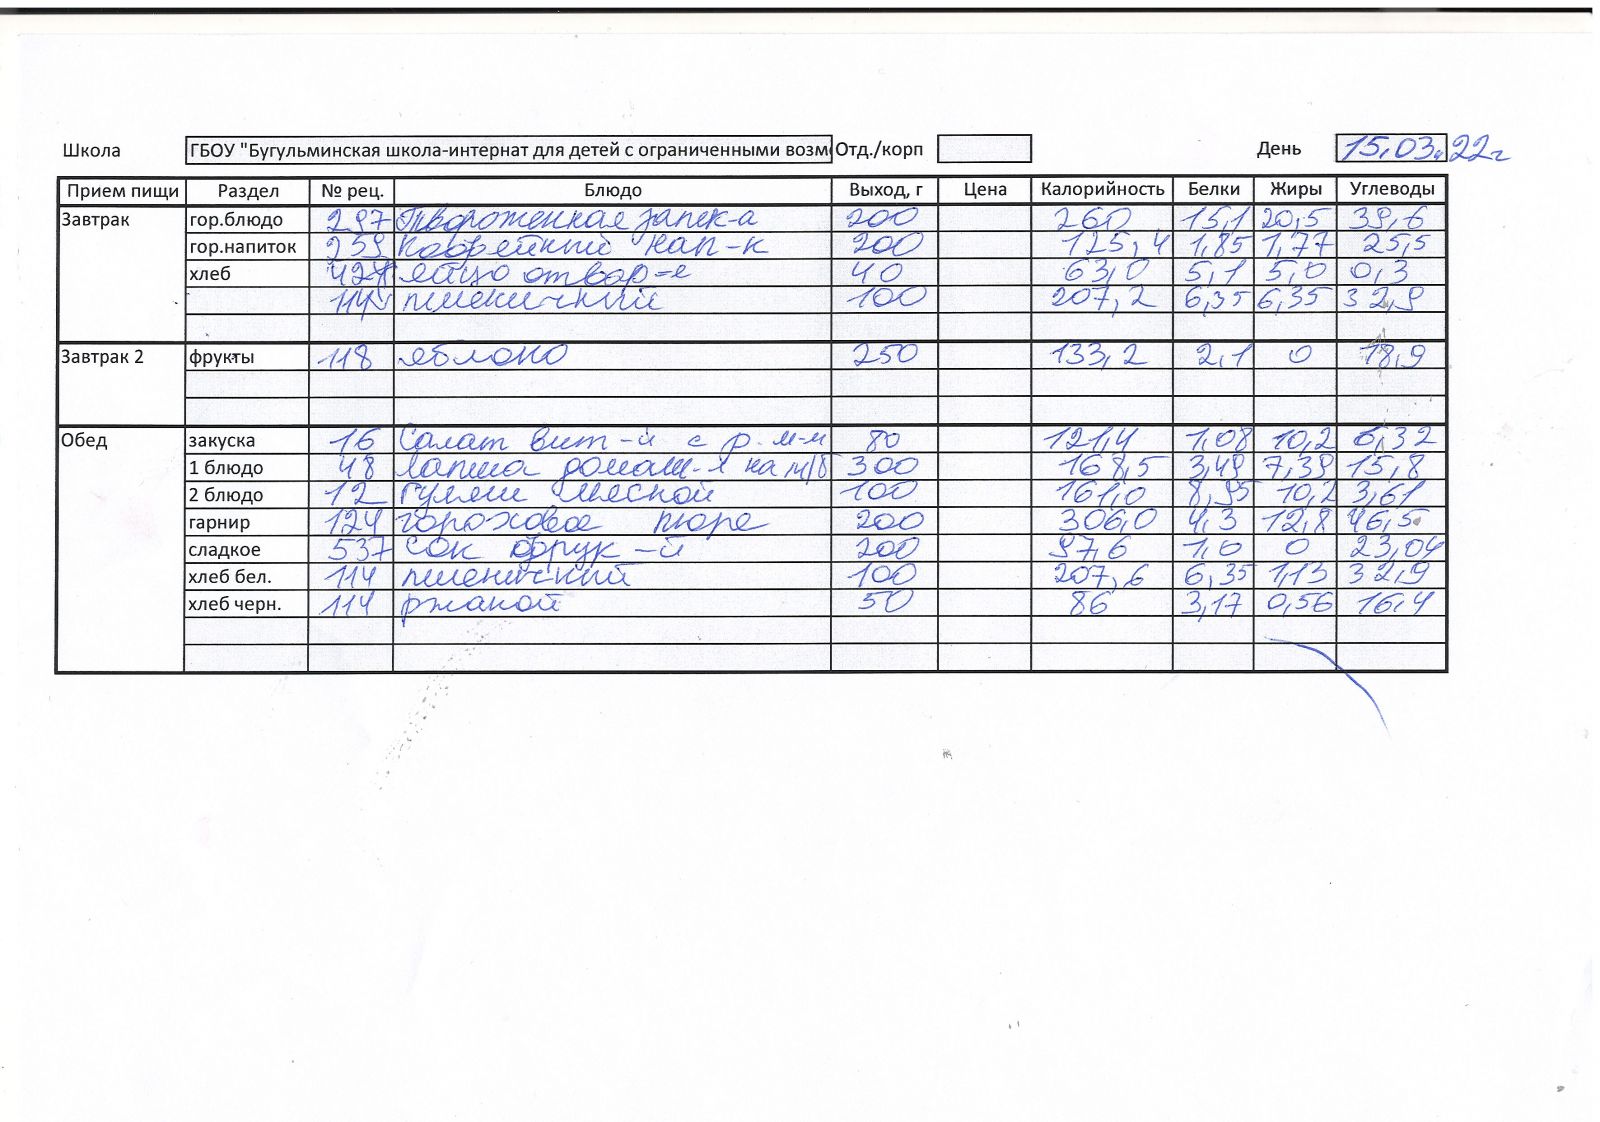 Школа ГБОУ "Бугульминская школа-интернат для детей с ограниченными возм Отд./корп День 15.03.22г
Прием пищи Раздел № рец. Блюдо Выход, г Цена Калорийность Белки Жиры Углеводы
Завтрак гор.блюдо 297 Твороженная запек-а 200 260 15,1 20,5 39,6
гор.напиток 259 Кофейный нап-к 200 125,4 1,85 1,77 25,5
хлеб яйцо отвар-е 40 63,0 5,1 5,0 0,3
114 пшеничный 100 207,2 6,35 6,35 32,9
Завтрак 2 фрукты 118 яблоко 250 133,2 2,1 0 18,9
Обед закуска 16 Салат вит-й с р. м-м 80 121,4 1,08 10,2 6,32
1 блюдо 48 лапша домаш-я на м/б 300 168,5 3,49 7,39 15,8
2 блюдо 12 гуляш мясной 100 161,0 8,95 10,2 3,61
гарнир 124 гороховое пюре 200 306,0 4,3 12,8 46,5
сладкое 537 сок фрук-й 200 97,6 1,0 0 23,04
хлеб бел. 114 пшеничный 100 207,6 6,35 1,13 32,9
хлеб черн. 114 ржаной 50 86 3,17 0,56 16,4